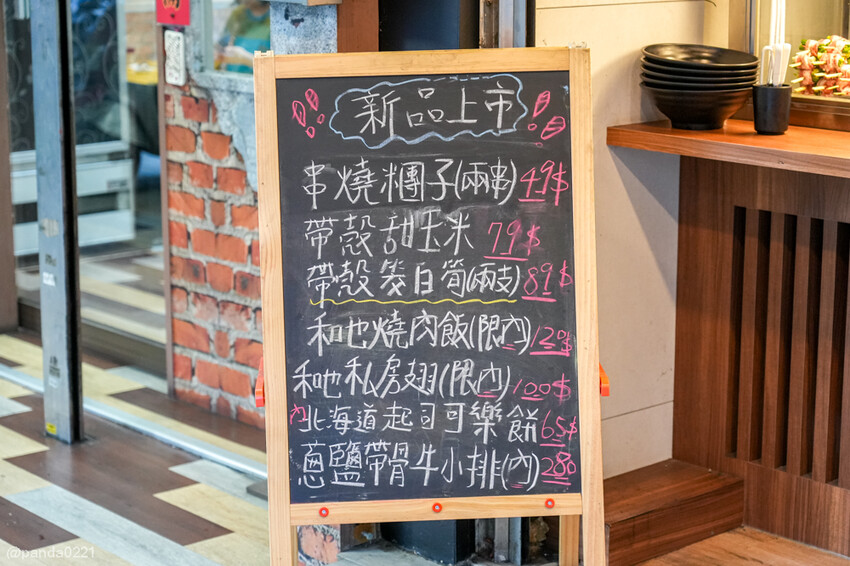 新品上市
串燒糰子(兩串)49$
帶殼甜玉米 79$
帶殼筊白筍(兩支)89$
和也燒肉飯(限內)120$
和也私房翅(限內)100$
內北海道起司可樂餅65$
蔥鹽帶骨牛小排(內)280
@panda0221